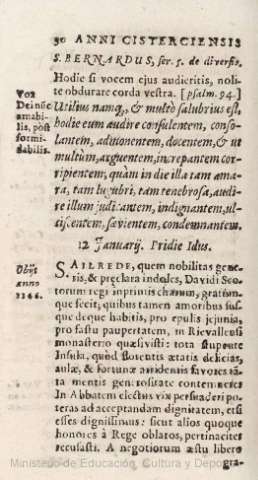 30 ANNI CISTERCIENSIS
S. BERNARDUS, ser. 5. de diversis.
Hodie si vocem ejus audieritis, noli-
te obdurare corda vestra. [psalm. 94.]
Vox
Dei nũc
amabi-
lis, post
formi-
dabilis.
Utilius namq;, & multò salubrius est,
hodie eum audire consulentem, conso-
lantem, admonentem, docentem, & ut
multùm, arguentem, increpantem cor-
ripientem, quàm in die illa tam ama-
ra, tam lugubri, tam tenebrosa, audi-
re illum judicantem, indignantem, ul-
ciscentem, sævientem, condemnantem.
12 Januarij. Pridie Idus.
Obijt
anno
1166.
S. AILREDE, quem nobilitas gene-
ris, & præclara indoles, Davidi Sco-
torum regi inprimis charum, gratũmque
fecit, quibus tamen amoribus sus-
que deque habitis, pro epulis jejunia,
pro fastu paupertatem, in Rievallensi
monasterio quæsivisti: tota stupente
Insula, quòd florentis ætatis delicias,
aulæ, & fortunæ arridentis favores tã-
ta mentis generositate contemneres
In Abbatem electus vix persuaderi po-
teras ad acceptandam dignitatem, etsi
esses dignissimus: sicut alios quoque
honores à Rege oblatos, pertinaciter
recusasti. A negotiorum æstu libero
gra-
Ministerio de Educación, Cultura y Deporte